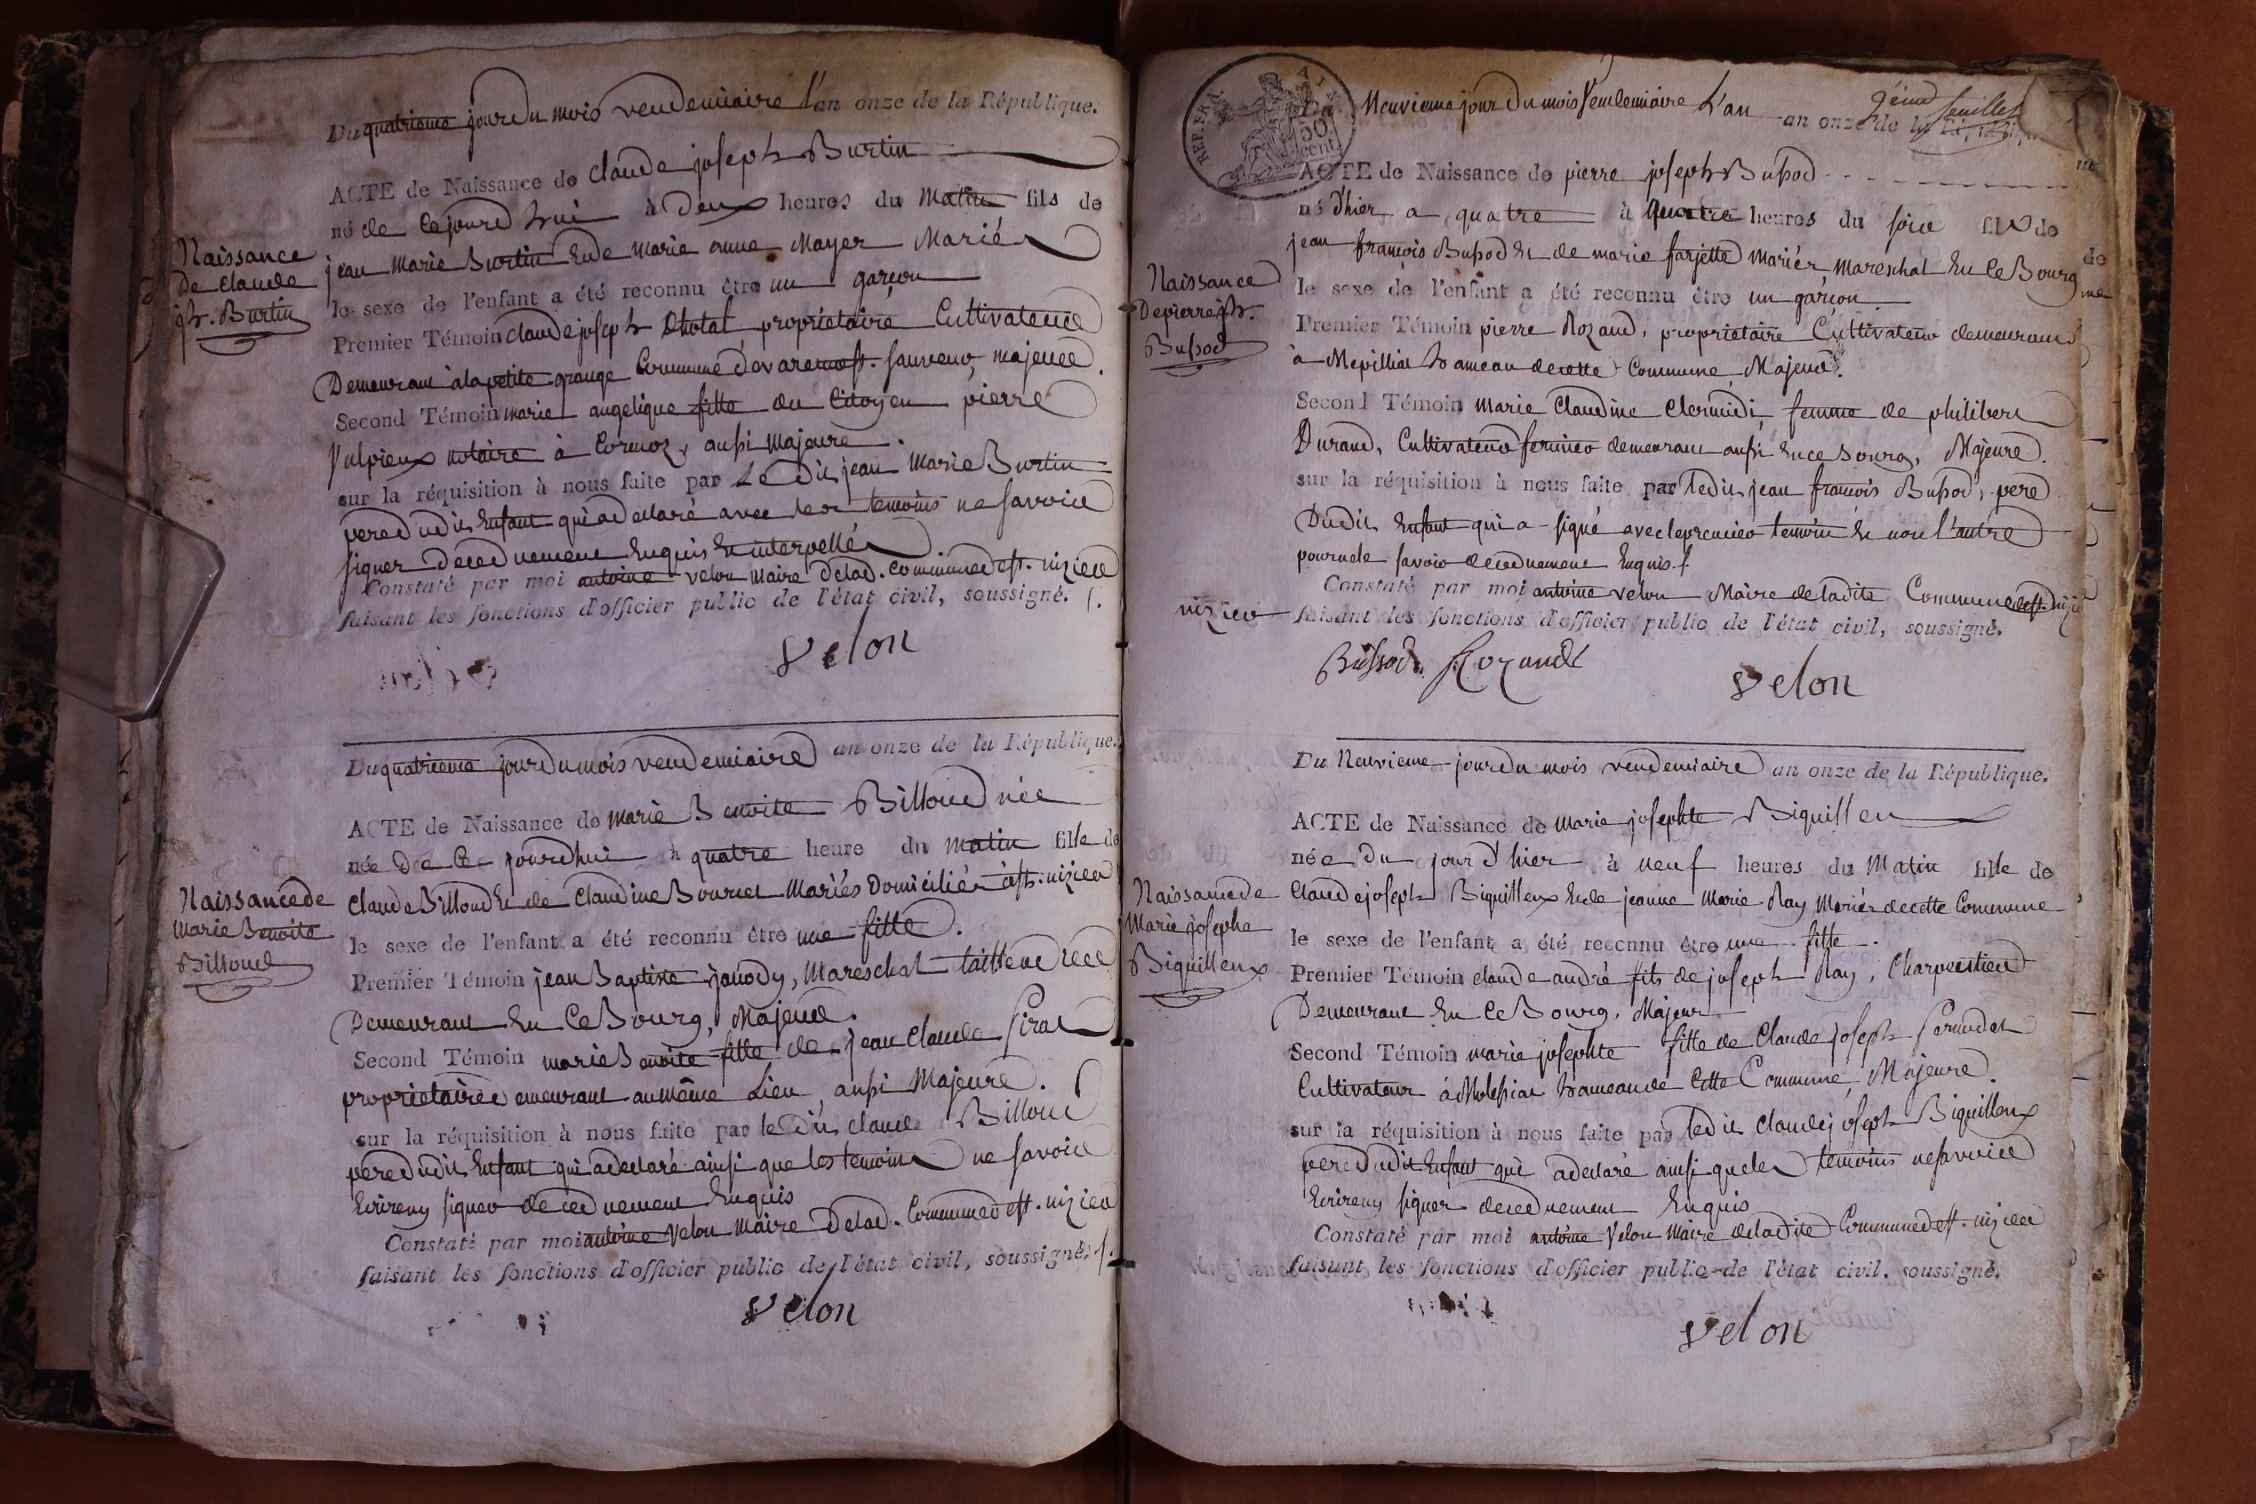 Du quatrieme jour du mois vendemiaire l'an onze de la République.
ACTE de Naissance de Claude joseph Burtin
né de Cejourd'hui à Deux heures du Matin fils de
jean Marie Burtin Et de Marie anne Mayer Mariés
le sexe de l'enfant a été reconnu être un garçon
Premier Témoin Claude joseph Chotal, proprietaire Cultivateur
Demeurant à la petite grange Commune de varennes st. sauveur, majeur.
Second Témoin marie angelique fille du Citoyen pierre
Vulpieux notaire à Cormoz, aussi Majeure.
sur la réquisition à nous faite par Ledit jean Marie Burtin
pere dudit Enfant qui a declaré avec les temoins ne savoir
signer de ce duement Enquis Et interpellés
Constaté par moi antoine velon Maire de lad. Commune de st. nizier
faisant les fonctions d'officier public de l'état civil, soussigné.
velon
Naissance
De Claude
jph. Burtin
Du quatrieme jour du mois vendemiaire an onze de la République.
ACTE de Naissance de Marie Benoite Billoud née
née De Ce jourdhui à quatre heure du matin fille de
Claude Billoud Et de Claudine Bourcet Mariés Domiciliés à st. nizier
le sexe de l'enfant a été reconnu être une fille.
Premier Témoin jean Baptiste janody, Mareschal taillendier
Demeurant En Ce Bourg, Majeur.
Second Témoin marie Benoite fille de jean Claude Pirat
proprietaire Demeurant au même Lieu, aussi Majeure.
sur la réquisition à nous faite par le Dit claude Billoud
pere dudit Enfant qui a declaré ainsi que les temoins ne savoir
Ecrire ny signer de ce duement Enquis
Constaté par moi antoine Velon Maire De lad. Commune de st. nizier
faisant les fonctions d'officier public de l'état civil, soussigné.
velon
Naissance de
Marie Benoite
Billoud
REP. FRA.
50
cent.
9eme feuillet
Du Neuvieme jour du mois Vendemiaire L'an an onze de la
ACTE de Naissance de pierre joseph Bussod
né d'hier a quatre à Quatre heures du soir fils de
jean françois Bussod Et de marie farjette Mariés Mareschal En Ce Bourg
le sexe de l'enfant a été reconnu être un garçon
Premier Témoin pierre Rozand, proprietaire Cultivateur demeurant
à Mepilliat hameau de cette Commune, Majeur.
Second Témoin Marie Claudine Clermidi femme de philibert
Durand, Cultivateur fermier demeurant aussi En ce Bourg, Majeure.
sur la réquisition à nous faite par ledit jean françois Bussod, pere
Dudit Enfant qui a signé avec le premier temoin Et non l'autre
pour ne le savoir de ce duement Enquis
Constaté par moi antoine velon Maire de ladite Commune de st. nizier
faisant les fonctions d'officier public de l'état civil, soussigné.
Bussod Rozand
velon
Naissance
De pierre jph.
Bussod
nizier
Du Neuvieme jour du mois vendemiaire an onze de la République.
ACTE de Naissance de Marie josephte Biquilleu
née Du jour d'hier à neuf heures du Matin fille de
Claude joseph Biquilleux Et de jeanne Marie Ray Mariés de cette Commune
le sexe de l'enfant a été reconnu être une fille.
Premier Témoin claude andré fils de joseph Ray, Charpentier
Demeurant En Ce Bourg, Majeur
Second Témoin marie josephte fille de Claude joseph
Cultivateur à hameau de Cette Commune, Majeure.
sur la réquisition à nous faite par Ledit Claude joseph Biquilleux
pere dudit Enfant qui a declaré ainsi que les temoins ne savoir
Ecrire ny signer de ce duement Enquis
Constaté par moi antoine Velon Maire de ladite Commune de st. nizier
faisant les fonctions d'officier public de l'état civil, soussigné.
velon
Naissance de
Marie josephe
Biquilleux